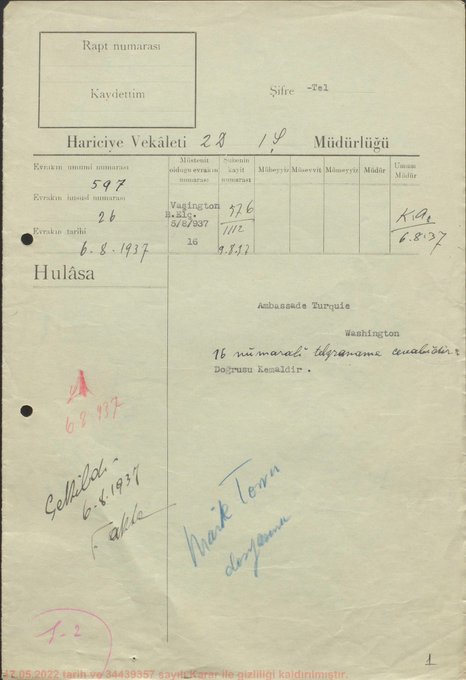 Rapt numarası
Kaydettim
Şifre -Tel
Hariciye Vekâleti 2D 1.Ş Müdürlüğü
Evrakın umumî numarası
597
Evrakın hususî numarası
26
Evrakın tarihi
6.8.1937
Müstenit olduğu evrakın numarası
Vaşington
B.Elç.
5/8/937
16
Şubenin kayit numarası
576
1112
9.8.37
Mübeyyiz
Müsevvit
Mümeyyiz
Müdür
Umum Müdür
K.A.
6.8.37
Hulâsa
Ambassade Turquie
Washington
16 numaralı telgramame cevabıdır:
Doğrusu Kemaldir .
6.8.937
Çekildi
6.8.1937
Mark Town
dosyasına
1-2
1
17.05.2022 tarih ve 34439357 sayılı Karar ile gizliliği kaldırılmıştır.